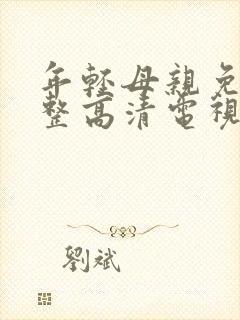 年輕母親免
整高清電視
劉斌